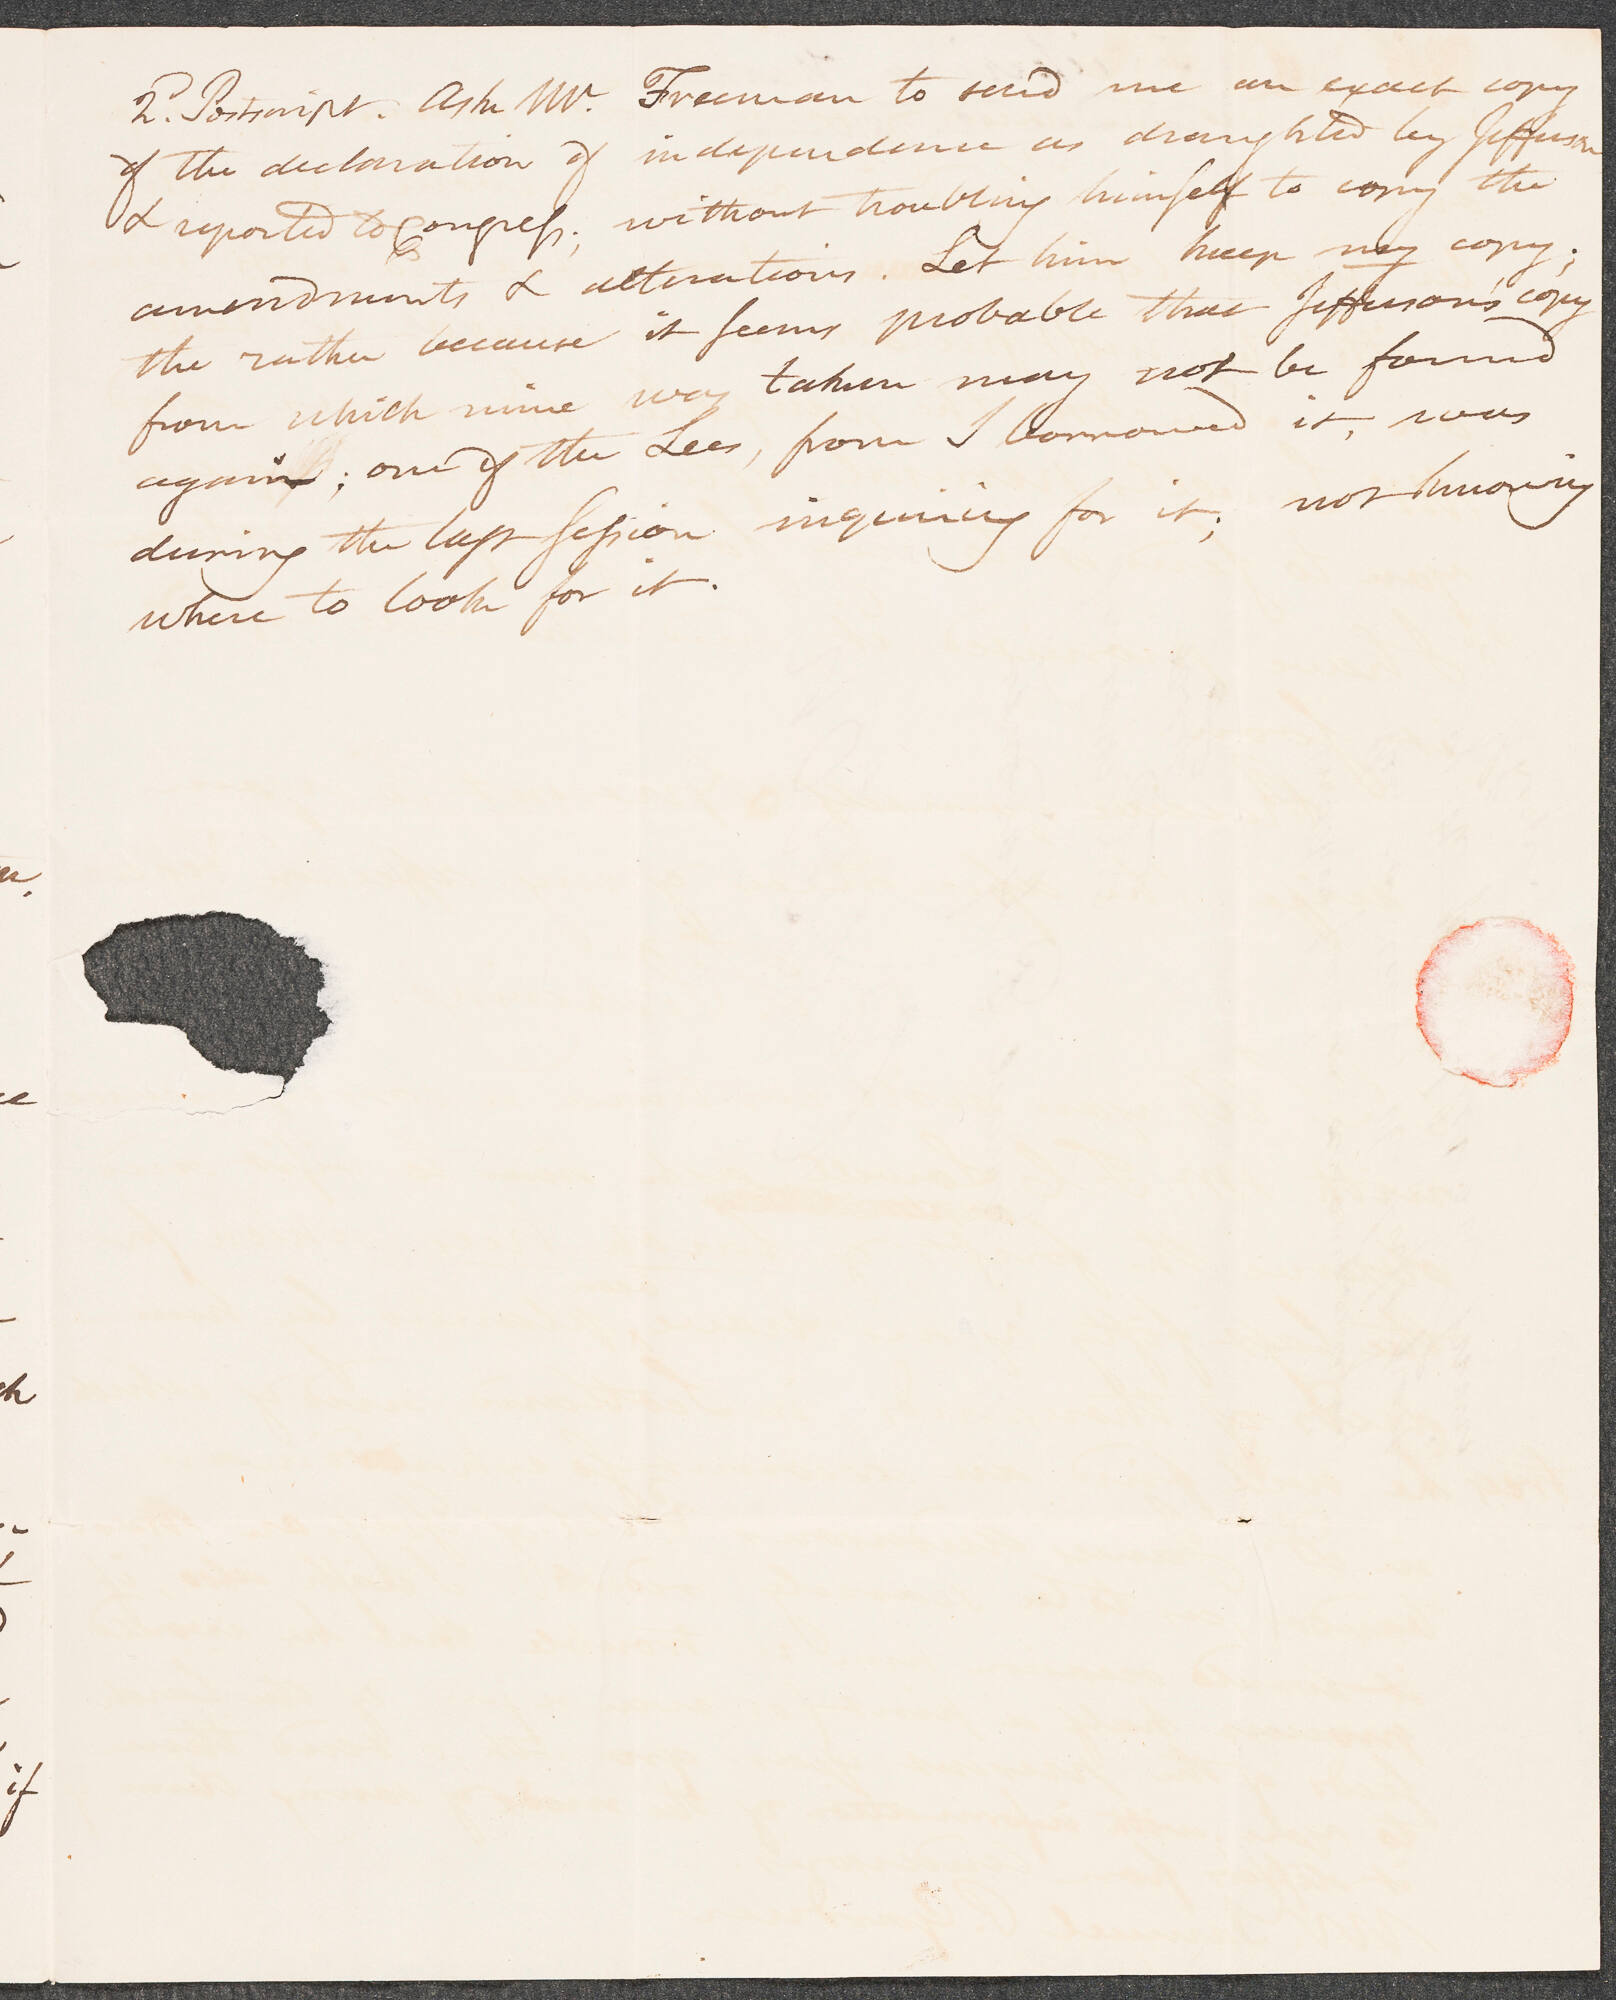 2d. Postscript. Ask Mr. Freeman to send me an exact copy
of the declaration of independence as draughted by Jefferson
& reported to Congress; without troubling himself to copy the
amendments & alterations. Let him keep my copy;
the rather because it seems probable that Jefferson's copy
from which mine was taken may not be found
again; one of the Lees, from I borrowed it, was
during the last session inquiring for it; not knowing
where to look for it.
if